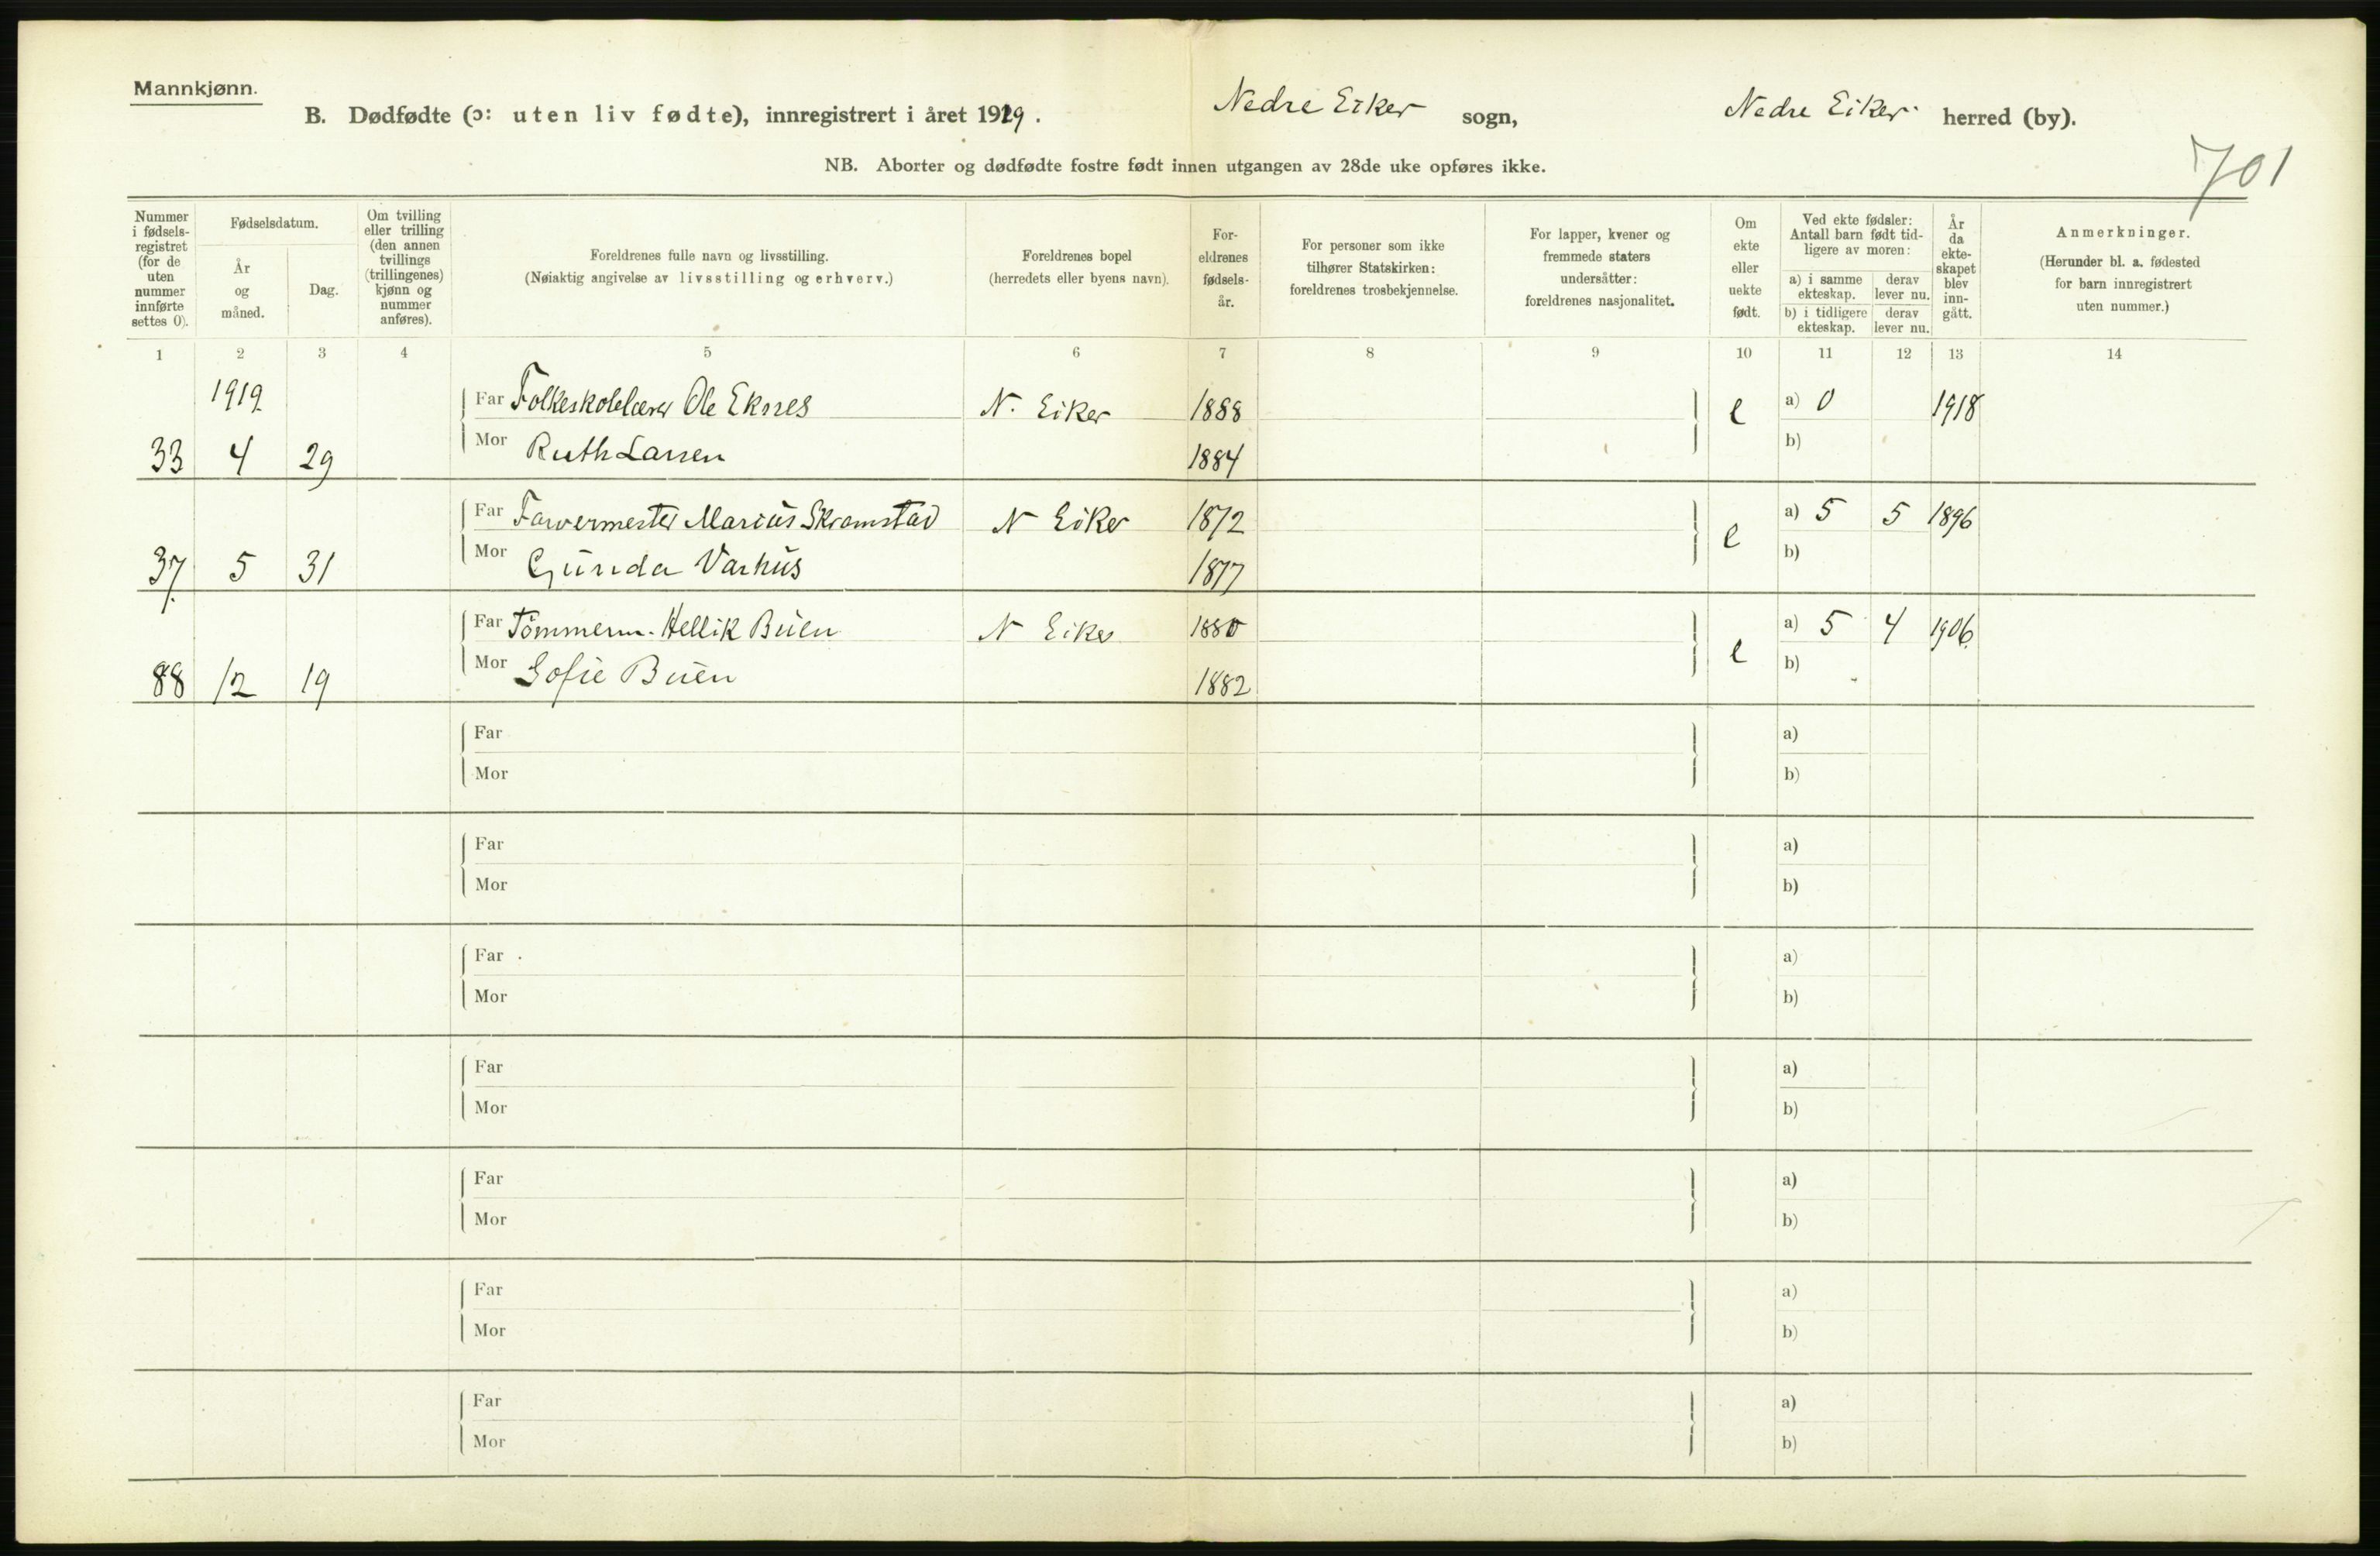 Mannkjønn.
B. Dødfødte (ɔ: uten liv fødte), innregistrert i året 1919. Nedre Eiker sogn, Nedre Eiker herred (by).
NB. Aborter og dødfødte fostre født innen utgangen av 28de uke opføres ikke.
701
Nummer i fødsels-registret (for de uten nummer innførte settes 0).
Fødselsdatum.
År og måned.
Dag.
Om tvilling eller trilling (den annen tvillings (trillingenes) kjønn og nummer anføres).
Foreldrenes fulle navn og livsstilling.
(Nøiaktig angivelse av livsstilling og erhverv.)
Foreldrenes bopel
(herredets eller byens navn).
For-eldrenes fødsels-år.
For personer som ikke tilhører Statskirken: foreldrenes trosbekjennelse.
For lapper, kvener og fremmede staters undersåtter: foreldrenes nasjonalitet.
Om ekte eller uekte født.
Ved ekte fødsler: Antall barn født tid-ligere av moren:
a) i samme ekteskap. derav lever nu.
b) i tidligere ekteskap. derav lever nu.
År da ekte-skapet blev inn-gått.
Anmerkninger.
(Herunder bl. a. fødested for barn innregistrert uten nummer.)
1 2 3 4 5 6 7 8 9 10 11 12 13 14
1919 Far Folkeskolelærer Ole Eknes N. Eiker 1888 e a) 0 1918
33 4 29 Mor Ruth Larsen 1884 b)
Far Farvermester Marius Skramstad N Eiker 1872 e a) 5 5 1896
37. 5 31 Mor Gunda Varhus 1877 b)
Far Tømmerm. Hellik Buen N Eiker 1880 e a) 5 4 1906.
88 12 19 Mor Sofie Buen 1882 b)
Far a)
Mor b)
Far a)
Mor b)
Far a)
Mor b)
Far a)
Mor b)
Far a)
Mor b)
Far a)
Mor b)
Far a)
Mor b)